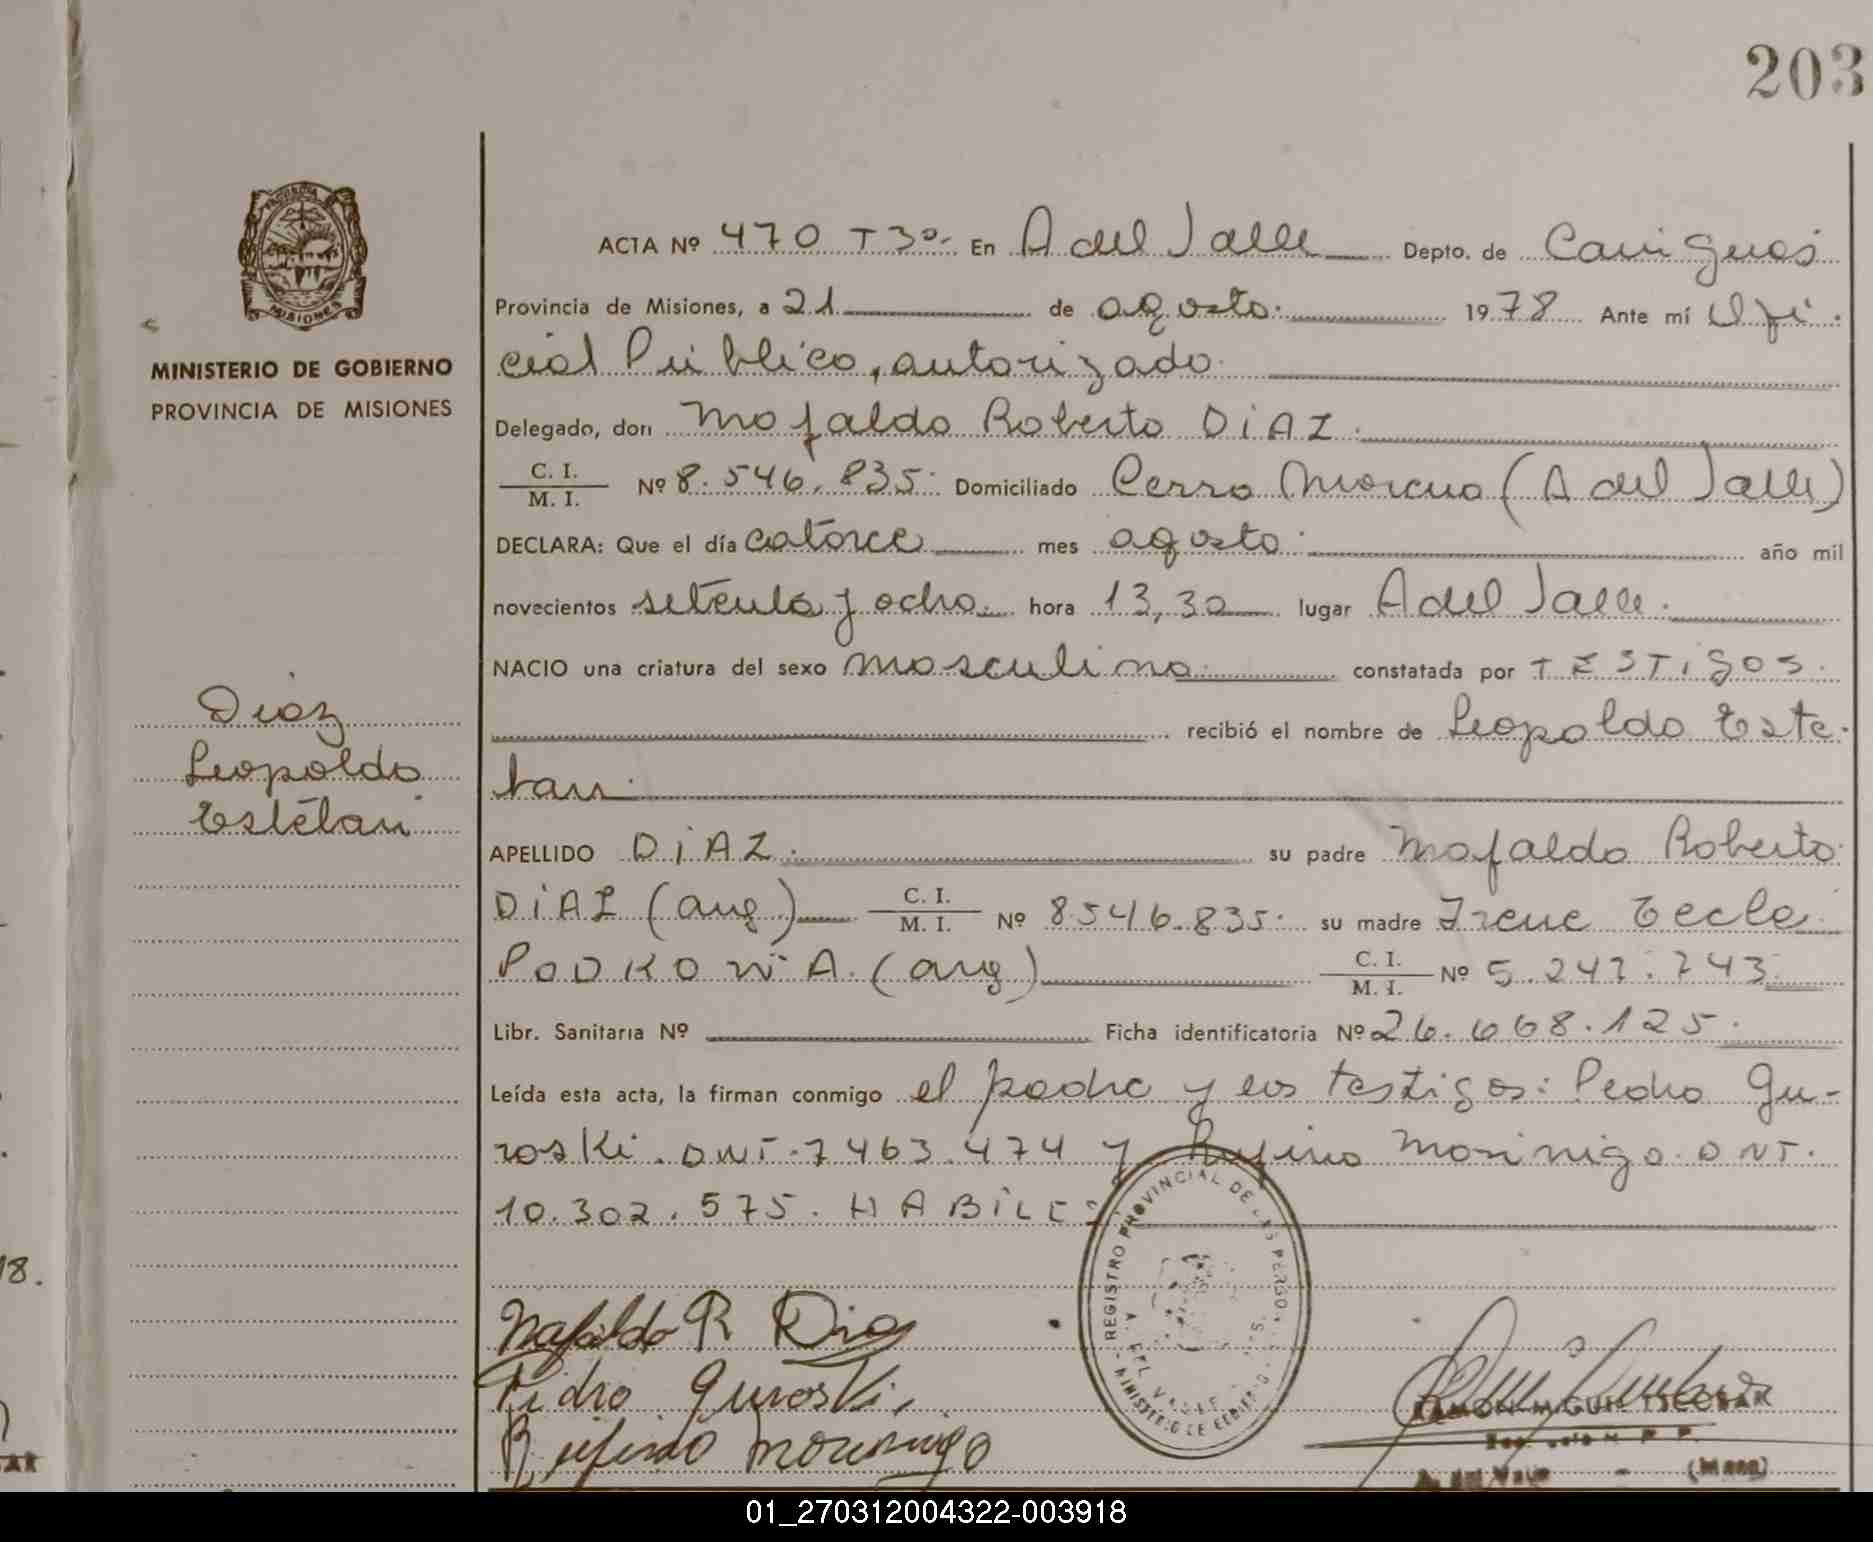 203
PROVINCIA DE
MISIONES
MINISTERIO DE GOBIERNO
PROVINCIA DE MISIONES
Diaz
Leopoldo
Estéban
ACTA Nº 470 T3º- En A del Valle Depto. de Cainguas
Provincia de Misiones, a 21 de agosto. 1978 Ante mí Ofi-
cial Público, autorizado.
Delegado, don Mafaldo Roberto DiAZ.
C. I. / M. I. Nº 8.546.835. Domiciliado Cerro Moreno (A del Valle)
DECLARA: Que el día catorce mes agosto. año mil
novecientos setenta y ocho. hora 13,30 lugar A del Valle.
NACIO una criatura del sexo masculino. constatada por TESTiGOS.
recibió el nombre de Leopoldo Este-
ban.
APELLIDO DiAZ. su padre Mafaldo Roberto
DiAZ (arg) C. I. / M. I. Nº 8.546.835. su madre Irene Tecla
PODKOWA. (arg) C. I. / M. I. Nº 5.247.743.
Libr. Sanitaria Nº Ficha identificatoria Nº 26.668.125.
Leída esta acta, la firman conmigo el padre y los testigos: Pedro Gu-
roski. DNI. 7463.474 y Rufino Morinigo. DNI.
10.302.575. HABiLES
18.
Mafaldo R Diaz
Pedro Guroski.
Rufino Morinigo
REGISTRO PROVINCIAL DE LAS PERSONAS
A. DEL VALLE
MINISTERIO DE GOBIERNO
RAMON MIGUEL ESCOBAR
A. del Valle - (Mnes)
AR
01_270312004322-003918